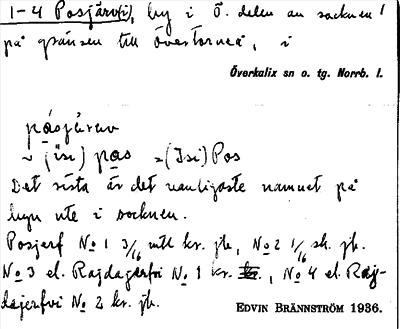 1-4 Posjärv(i), by i Ö. delen av socknen
på gränsen till Övertorneå, i
Överkalix sn o. tg. Norrb. l.
pɑ́sjæ̀rɑv
~ (isi) pɑs =(Isi)Pos
Det sista är det vanligaste namnet på
byn ute i socknen.
Posjerf No 1 3/16 mtl kr. jb., No 2 1/6 sk. jb.
No 3 el. Rajdagerfvi No 1 kr. , No 4 el. Raj-
dajerfvi No 2 kr. jb.
EDVIN BRÄNNSTRÖM 1936.